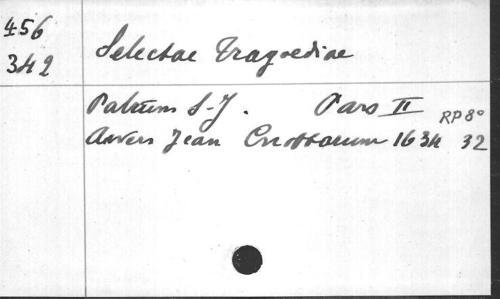 456
342
Selectae Tragoediae
Patrum S-J. Pars II
RP 8°
Anvers Jean Cnobbarum 1634 32